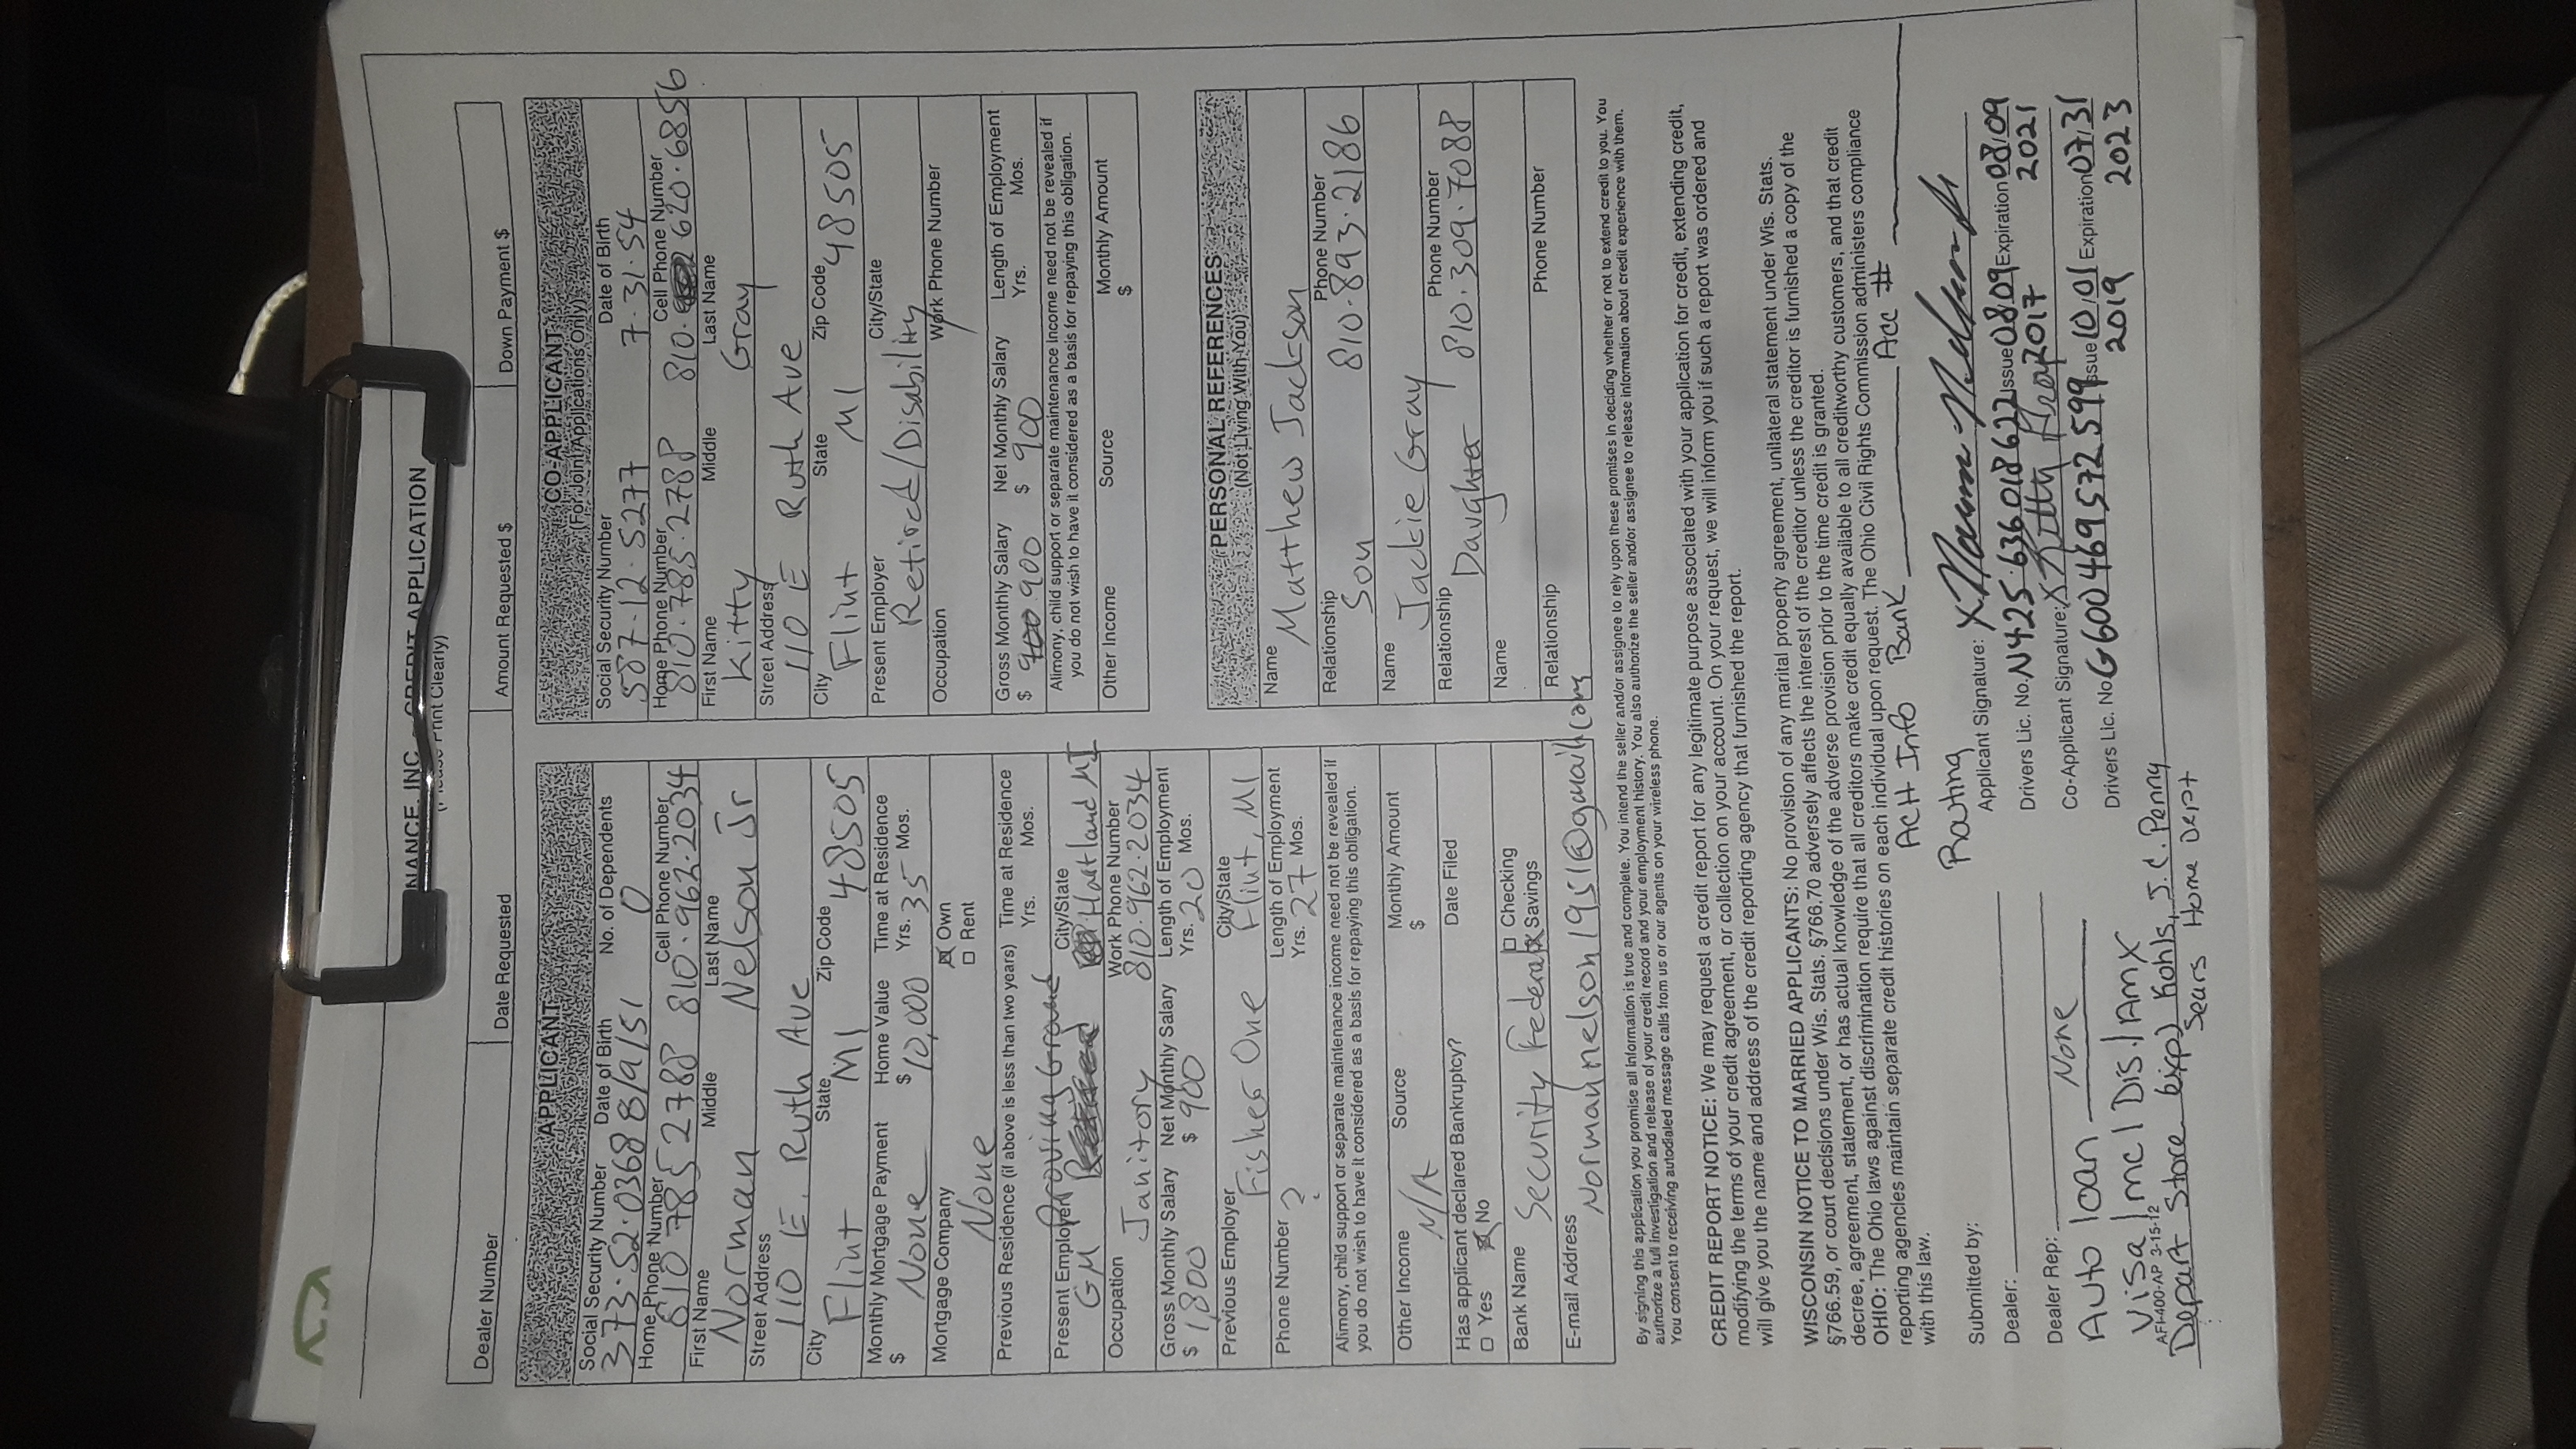 FINANCE, INC. - CREDIT APPLICATION
(Please Print Clearly)
Dealer Number
Date Requested
Amount Requested $
Down Payment $
APPLICANT
Social Security Number Date of Birth No. of Dependents
373.52.0368 8/9/51 0
Home Phone Number Cell Phone Number
810 785 2788 810.962.2034
First Name Middle Last Name
Norman Nelson Jr
Street Address
110 E. Ruth Ave
City State Zip Code
Flint MI 48505
Monthly Mortgage Payment Home Value Time at Residence
$ None $10,000 Yrs. 35 Mos.
Mortgage Company Own
None Rent
Previous Residence (if above is less than two years) Time at Residence
Yrs. Mos.
Present Employer Proving Ground City/State
GM Retired Hartland MI
Occupation Work Phone Number
Janitory 810.962.2034
Gross Monthly Salary Net Monthly Salary Length of Employment
$ 1800 $ 900 Yrs. 20 Mos.
Previous Employer City/State
Fisher One Flint, MI
Phone Number ? Length of Employment
Yrs. 27 Mos.
Alimony, child support or separate maintenance income need not be revealed if
you do not wish to have it considered as a basis for repaying this obligation.
Other Income Source Monthly Amount
N/A $
Has applicant declared Bankruptcy? Date Filed
Yes No
Bank Name Checking
Security Federal Savings
E-mail Address
Normannelson1951@gmail.com
CO-APPLICANT
(For Joint Applications Only)
Social Security Number Date of Birth
587.12.5277 7.31.54
Home Phone Number Cell Phone Number
810.785.2788 810. 620.6856
First Name Middle Last Name
Kitty Gray
Street Address
110 E Ruth Ave
City State Zip Code
Flint MI 48505
Present Employer City/State
Retired/Disability
Occupation Work Phone Number
Gross Monthly Salary Net Monthly Salary Length of Employment
$ 900 $ 900 Yrs. Mos.
Alimony, child support or separate maintenance income need not be revealed if
you do not wish to have it considered as a basis for repaying this obligation.
Other Income Source Monthly Amount
$
PERSONAL REFERENCES
(Not Living With You)
Name
Matthew Jackson
Relationship Phone Number
Son 810.893.2186
Name
Jackie Gray
Relationship Phone Number
Daughter 810.309.7088
Name
Relationship Phone Number
By signing this application you promise all information is true and complete. You intend the seller and/or assignee to rely upon these promises in deciding whether or not to extend credit to you. You
authorize a full investigation and release of your credit record and your employment history. You also authorize the seller and/or assignee to release information about credit experience with them.
You consent to receiving autodialed message calls from us or our agents on your wireless phone.
CREDIT REPORT NOTICE: We may request a credit report for any legitimate purpose associated with your application for credit, extending credit,
modifying the terms of your credit agreement, or collection on your account. On your request, we will inform you if such a report was ordered and
will give you the name and address of the credit reporting agency that furnished the report.
WISCONSIN NOTICE TO MARRIED APPLICANTS: No provision of any marital property agreement, unilateral statement under Wis. Stats.
§766.59, or court decisions under Wis. Stats. §766.70 adversely affects the interest of the creditor unless the creditor is furnished a copy of the
decree, agreement, statement, or has actual knowledge of the adverse provision prior to the time credit is granted.
OHIO: The Ohio laws against discrimination require that all creditors make credit equally available to all creditworthy customers, and that credit
reporting agencies maintain separate credit histories on each individual upon request. The Ohio Civil Rights Commission administers compliance
with this law.
ACH Info Bank Acc #
Routing
Submitted by:
Dealer:
Dealer Rep:
Auto loan None
Visa/mc/Dis./Amx
AFI-400-AP 3-15-12
Depart Store (exp) Kohls, J.C. Penny
Sears Home Depot
Applicant Signature: X Norman Nelson Jr
Drivers Lic. No. N425.636018622 Issue 08/09 2017 Expiration 08/09 2021
Co-Applicant Signature: X Kitty Gray
Drivers Lic. No. G600469572599 Issue 10/01 2019 Expiration 07/31 2023